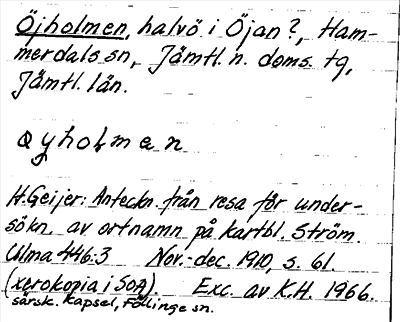 Öjholmen, halvö i Öjan?, Ham-
merdals sn, Jämtl. n. doms. tg,
Jämtl. län.
øyholmen
H.Geijer: Anteckn. från resa för under-
sökn. av ortnamn på kartbl. Ström.
Ulma 446:3 Nov.-dec. 1910, s. 61.
(xerokopia i SOA). Exc. av K.H. 1966.
särsk. Kapsel, Föllinge sn.